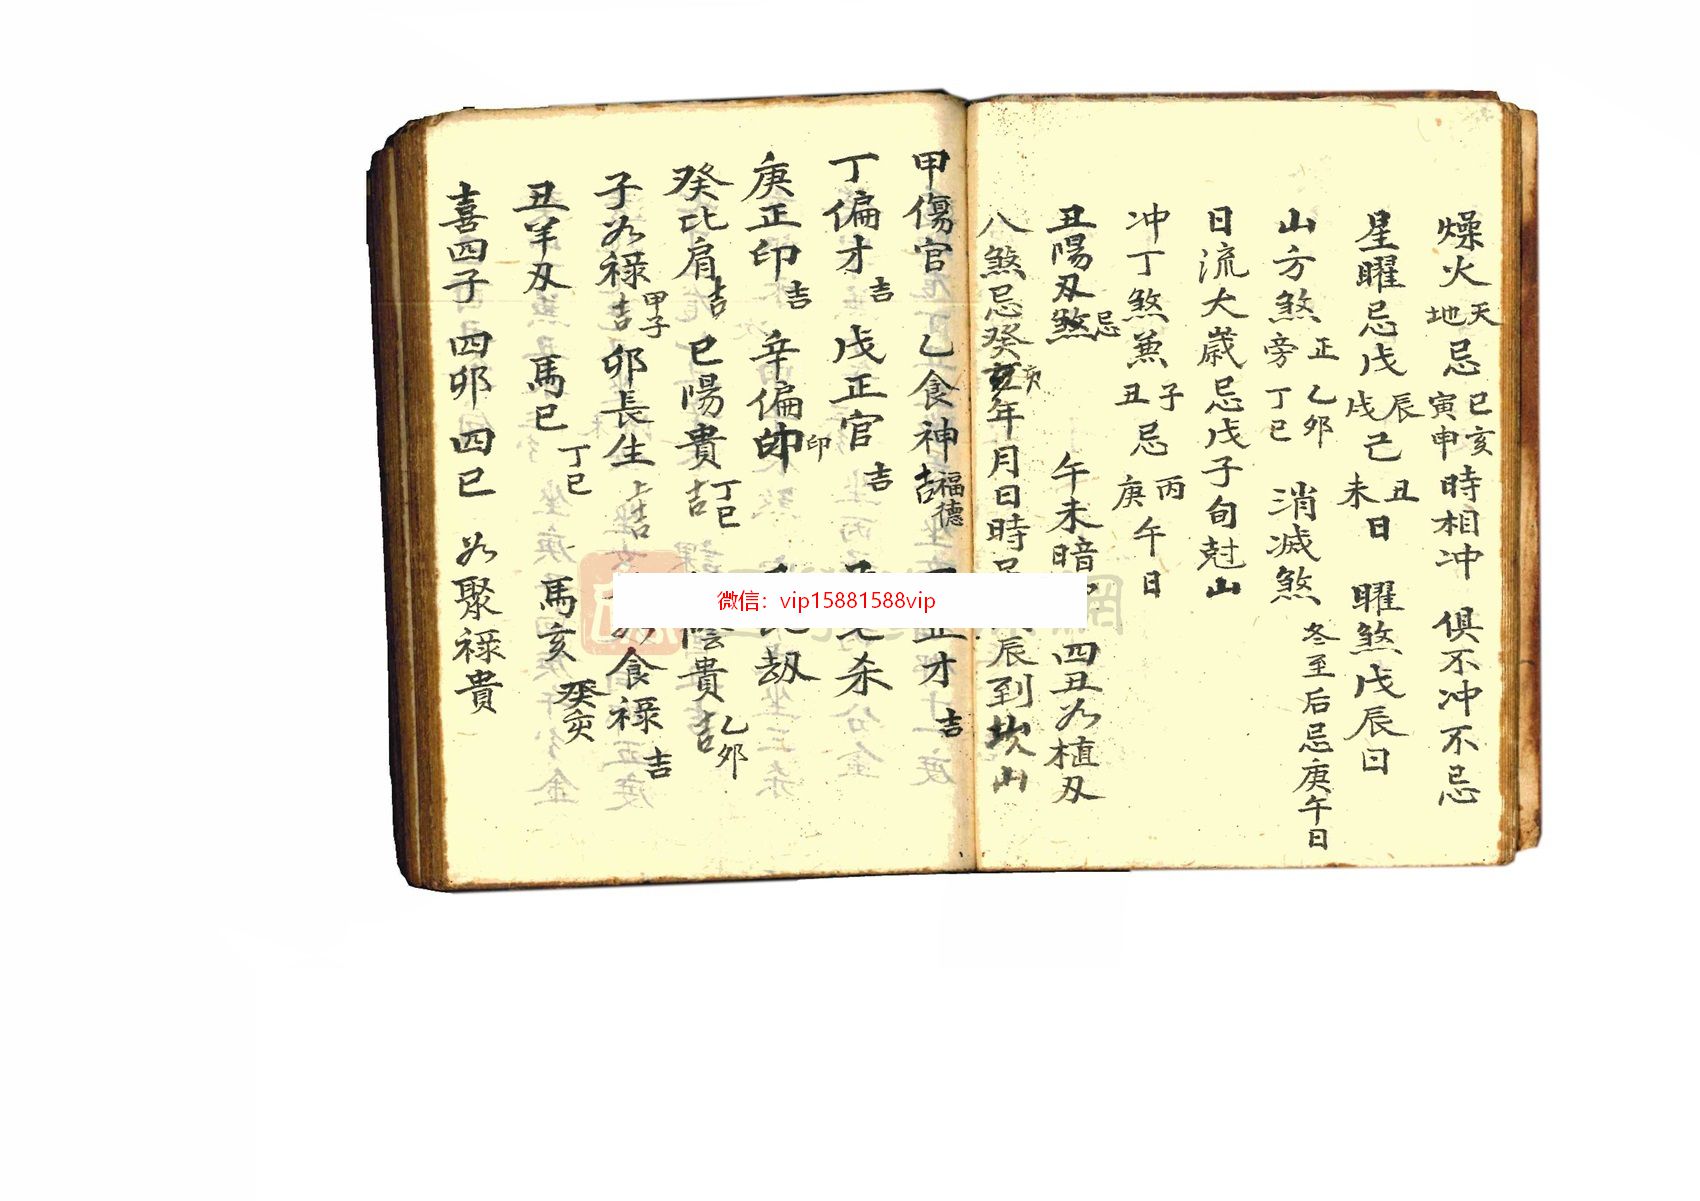 燥火天地忌巳亥寅申時相冲 俱不冲不忌
星曜忌戊辰戌己丑未日 曜煞戊辰日
山方煞正旁乙卯丁巳 消滅煞冬至后忌庚午日
日流太歲忌戊子旬尅山
冲丁煞兼子丑忌丙庚午日
丑陽刄煞忌 午未暗 四丑为植刄
八煞忌癸亥年月日時 辰到坎山
甲傷官 乙食神吉福德 正才吉
丁偏才吉 戊正官吉 杀
庚正印吉 辛偏印 劫
癸比肩吉 巳陽貴吉丁巳 陰貴吉乙卯
子为禄吉甲子 卯長生上吉 食禄吉
丑羊刄 馬巳丁巳 馬亥癸亥
喜四子 四卯 四巳 为聚禄貴
微信：vip15881588vip